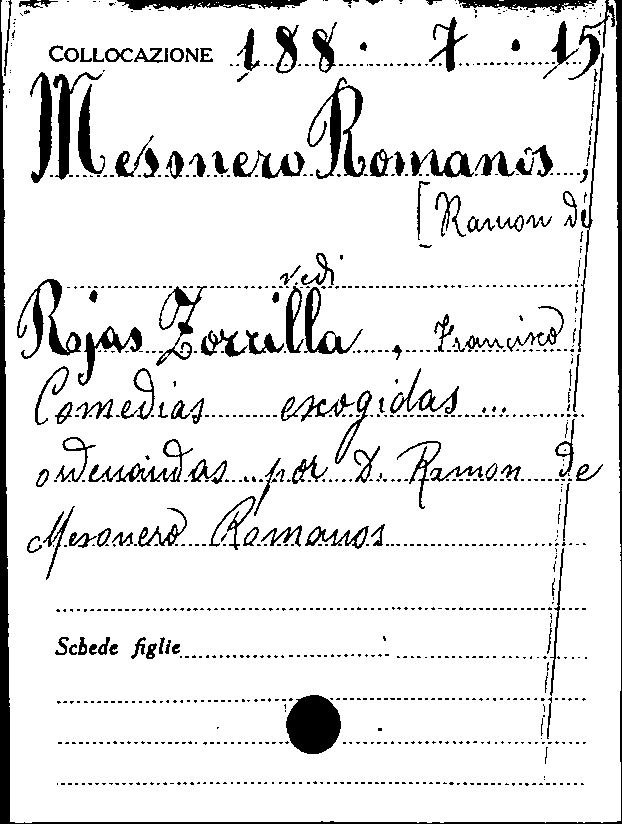 COLLOCAZIONE 188 · 7 · 15
Mesonero Romanos,
[Ramon de
vedi
Rojas Zorrilla, Francisco
Comedias escogidas ...
ordenaindas por D. Ramon de
Mesonero Romanos
Schede figlie